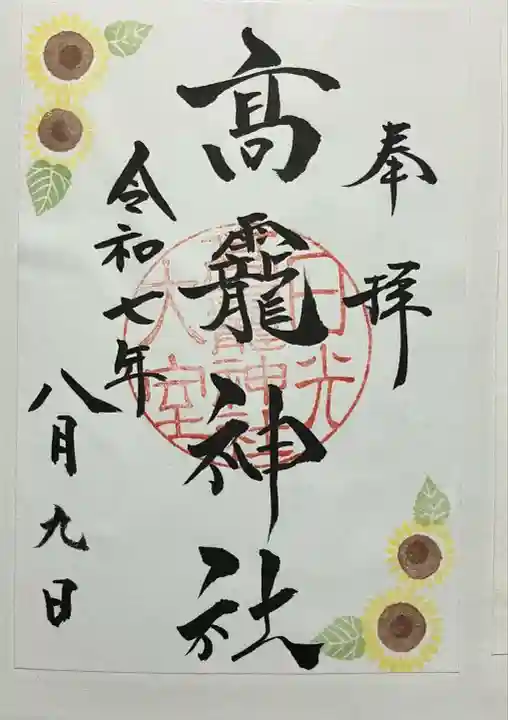 奉拝
髙龗神社
日光
大室
令和七年
八月九日